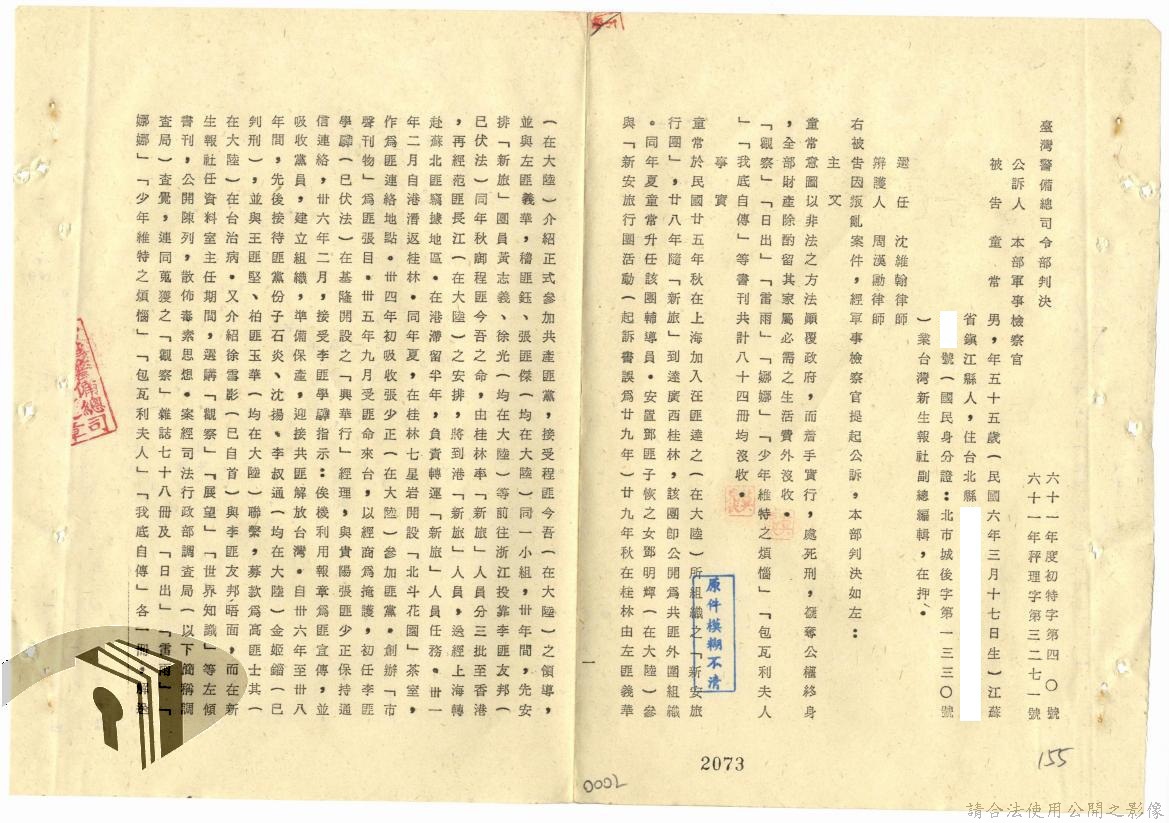 臺灣警備總司令部判決
六十一年度初特字第四〇號
六十一年秤理字第三二七一號
公訴人 本部軍事檢察官
被告 童常 男,年五十五歲(民國六年三月十七日生)江蘇
省鎮江縣人,住台北縣
號(國民身分證:北市城後字第一三三〇號
)業台灣新生報社副總編輯,在押。
選任 沈維翰律師
辯護人 周漢勛律師
右被告因叛亂案件,經軍事檢察官提起公訴,本部判決如左:
主文
童常意圖以非法之方法顛覆政府,而着手實行,處死刑,褫奪公權終身
,全部財產除酌留其家屬必需之生活費外沒收。
「觀察」「日出」「雷雨」「娜娜」「少年維特之煩惱」「包瓦利夫人
」「我底自傳」等書刊共計八十四冊均沒收。
事實
童常於民國廿五年秋在上海加入在匪達之(在大陸)所組織之「新安旅
行團」,廿八年隨「新旅」到達廣西桂林,該團卽公開為共匪外圍組織
。同年夏童常升任該團輔導員。安置鄧匪子恢之女鄧明輝(在大陸)參
與「新安旅行團活動(起訴書誤為廿九年)廿九年秋在桂林由左匪義華
(在大陸)介紹正式參加共產匪黨,接受程匪今吾(在大陸)之領導,
並與左匪義華,稽匪鈺、張匪傑(均在大陸)同一小組,卅年間,先安
排「新旅」團員黃志義、徐光(均在大陸)等前往浙江投靠匪友邦(
已伏法)同年秋啣程匪今吾之命,由桂林率「新旅」人員分三批至香港
,再經范匪長江(在大陸)之安排,將到港「新旅」人員,逸經上海轉
赴蘇北匪竊據地區。在港滯留半年,負責轉運「新旅」人員任務。卅一
年二月自港潛返桂林。同年夏,在桂林七星岩開設「北斗花園」茶室,
作為匪連絡地點。卅四年初吸收張少正(在大陸)參加匪黨。創辦「市
聲刊物」為匪張目。卅五年九月受匪命來台,以經商為掩護,初任李匪
學驊(已伏法)在基隆開設之「興華行」經理,與貴陽張匪少正保持通
信連絡,卅六年二月,接受李匪學驊指示:俟機利用報章為匪宣傳,並
吸收黨員,建立組織,準備保產,迎接共匪解放台灣。自卅六年至卅八
年間,先後接待匪黨份子石炎、沈揚、李叔通(均在大陸)金姬鎦(已
判刑),並與王匪堅、柏匪玉華(均在大陸)聯繫,募款為高匪士其(
在大陸)在台治病。又介紹徐雪影(已自首)與李匪友邦晤面,而在新
生報社任資料室主任期間,選購「觀察」「展望」「世界知識」等左傾
書刊,公開陳列,散佈毒素思想。案經司法行政部調查局(以下簡稱調
查局)查覺,連同蒐獲之「觀察」雜誌七十八冊及「日出」「雷雨」「
娜娜」「少年維特之煩惱」「包瓦利夫人」「我底自傳」各一冊,解送
原件模糊不清
一
2073
0002
155
請合法使用公開之影像